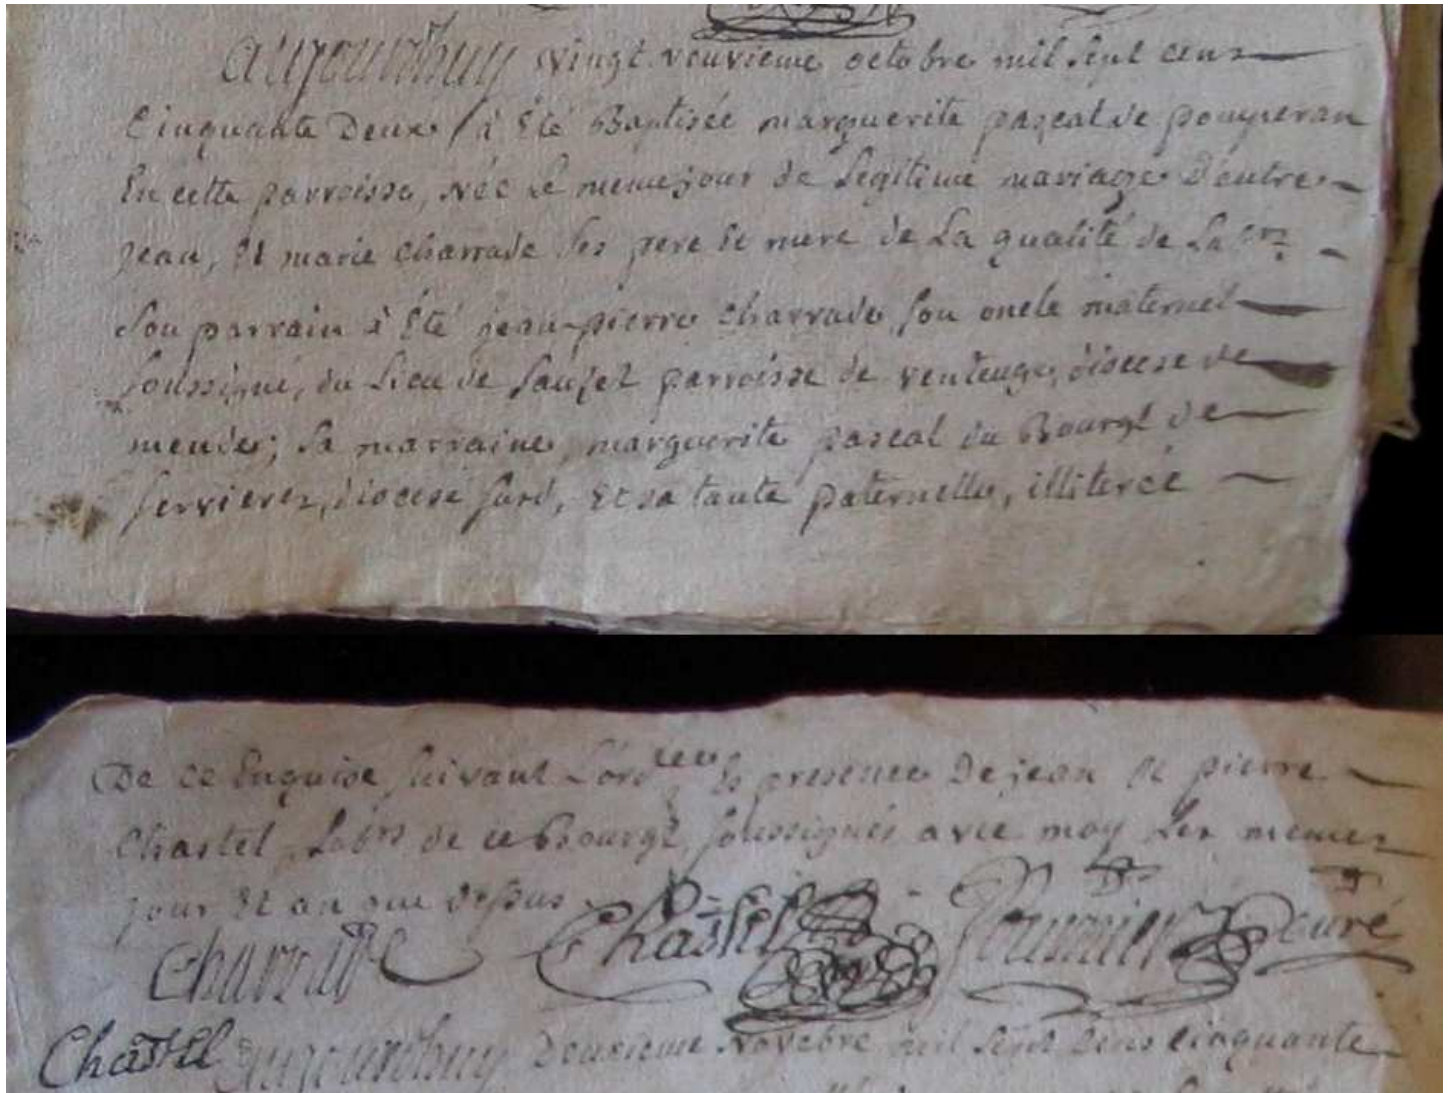 aujourdhuy vingt neuvieme octobre mil sept cens
Cinquante Deux / à Eté Baptisée marguerite pascal de pompeyran
En cette parroisse, née Le meme jour de Legitime mariage D'entre
jean, Et marie Charrade ses pere Et mere de La qualité de La
Son parrain à Eté jean-pierre Charrade son oncle maternel
soussigné, du Lieu de Saujet parroisse de venteuge, diocese de
mende; sa marraine, marguerite pascal du Bourgt de
servieres, diocese susd, Et sa tante paternelle, illiterée
De ce Enquise suivant L'ordce Es presence De jean Et pierre
Chastel, Labrs de ce Bourgt, soussignés avec moy Les memes
jour Et an que dessus
Charrade Chastel Fournier Curé
Chastel aujourdhuy Deuxieme Novebre mil sept Cens Cinquante